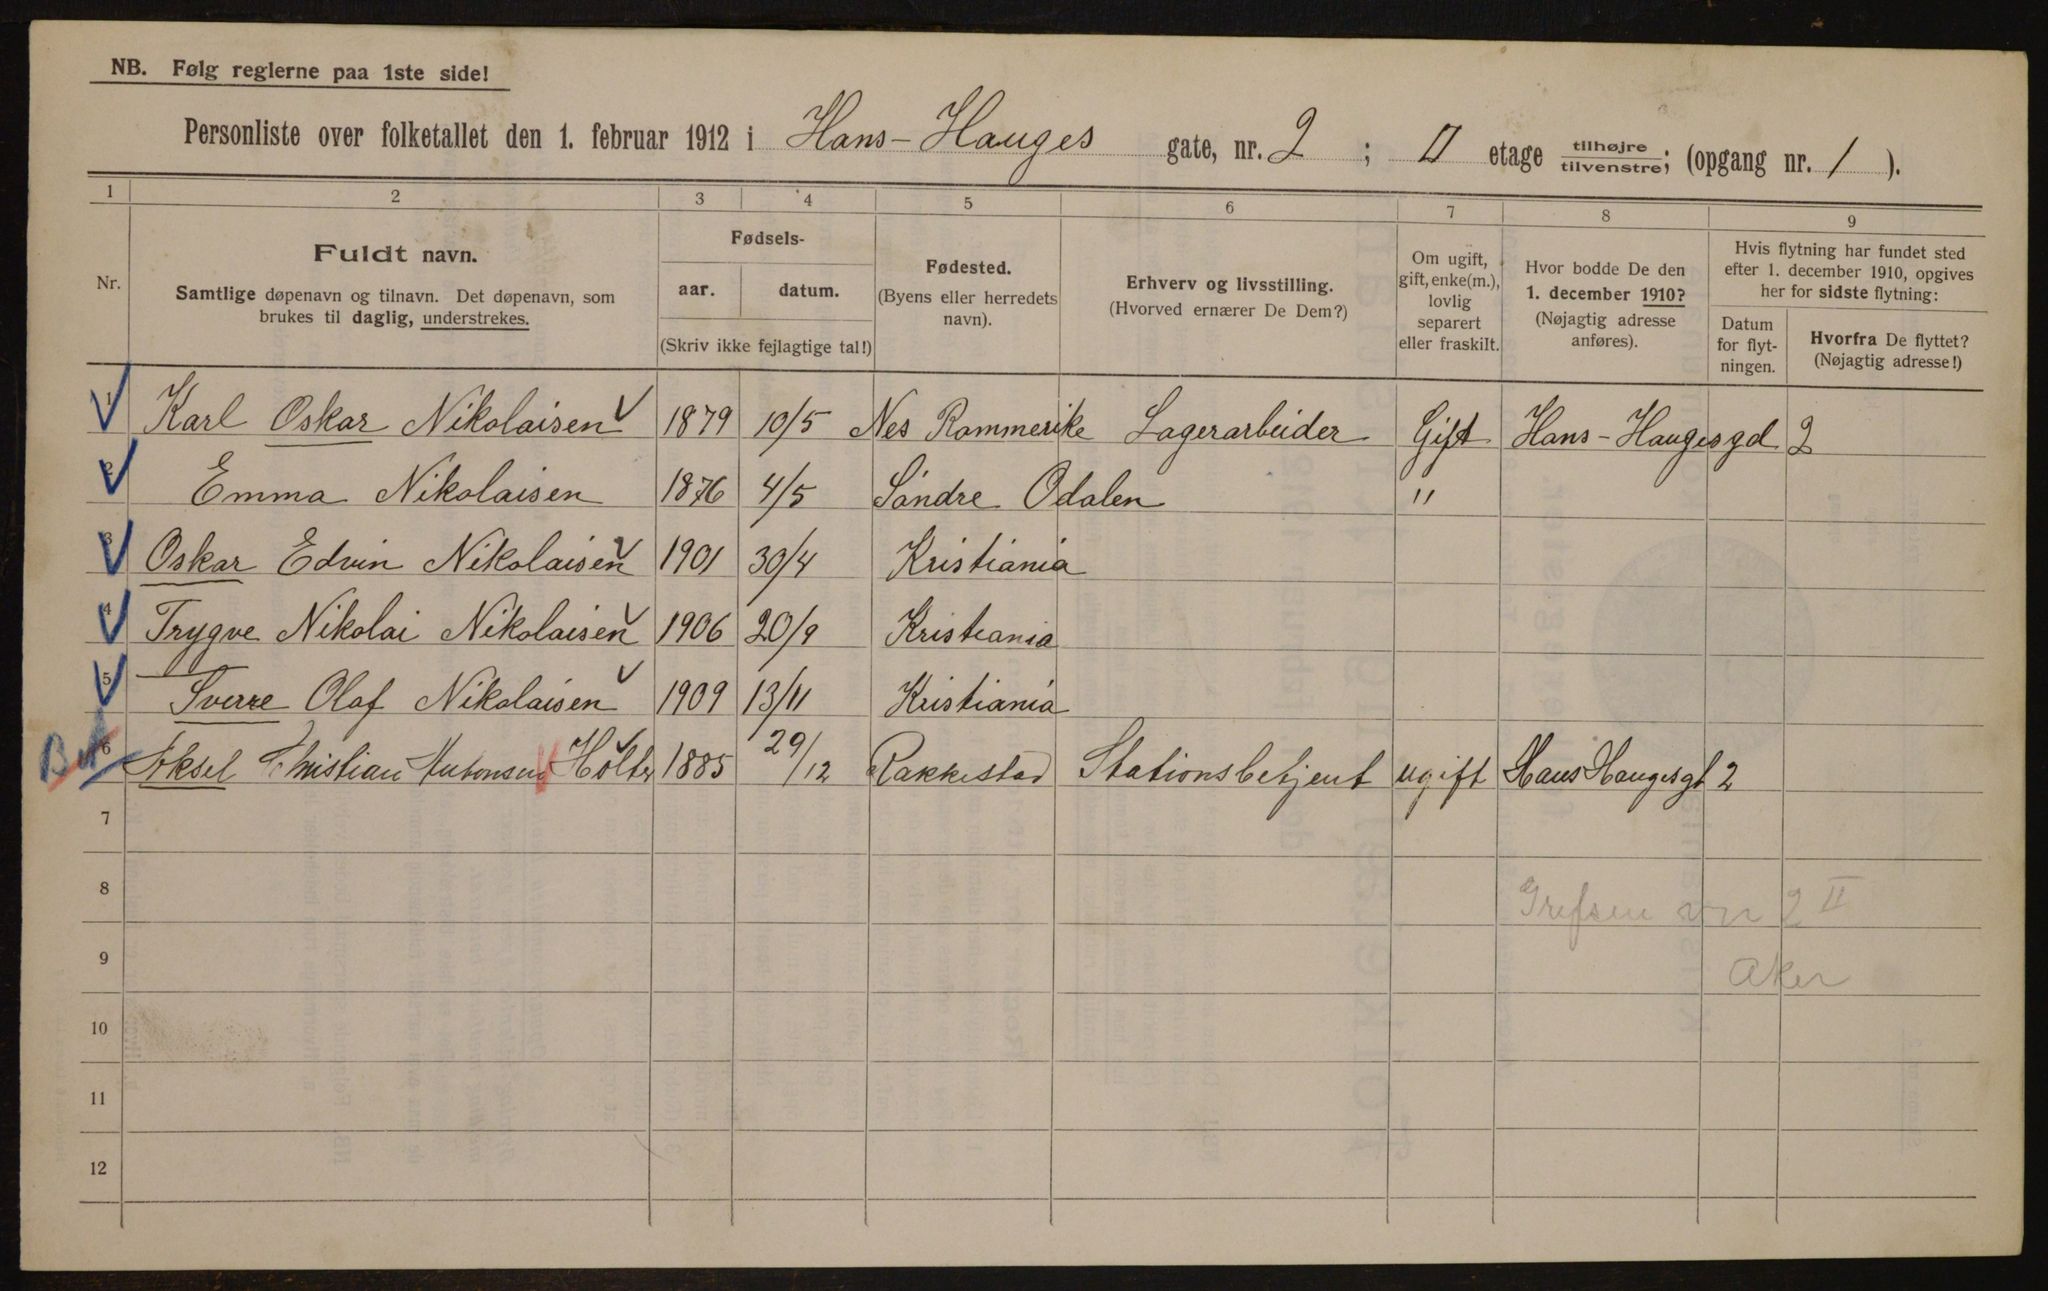 NB. Følg reglerne paa 1ste side!
Personliste over folketallet den 1. februar 1912 i Hans-Hauges gate, nr. 2 ; II etage tilhøjre/tilvenstre; (opgang nr. 1 ).
1 2 3 4 5 6 7 8 9
Nr.
Fuldt navn.
Samtlige døpenavn og tilnavn. Det døpenavn, som
brukes til daglig, understrekes.
Fødsels-
aar. datum.
(Skriv ikke fejlagtige tal!)
Fødested.
(Byens eller herredets
navn).
Erhverv og livsstilling.
(Hvorved ernærer De Dem?)
Om ugift,
gift, enke(m.),
lovlig
separert
eller fraskilt.
Hvor bodde De den
1. december 1910?
(Nøjagtig adresse
anføres).
Hvis flytning har fundet sted
efter 1. december 1910, opgives
her for sidste flytning:
Datum
for flyt-
ningen.
Hvorfra De flyttet?
(Nøjagtig adresse!)
1 Karl Oskar Nikolaisen 1879 10/5 Nes Rommerike Lagerarbeider Gift Hans-Haugesgd 2
2 Emma Nikolaisen 1876 4/5 Söndre Odalen "
3 Oskar Edvin Nikolaisen 1901 30/4 Kristiania
4 Trygve Nikolai Nikolaisen 1906 20/9 Kristiania
5 Sverre Olaf Nikolaisen 1909 13/11 Kristiania
6 Aksel Christian Antonsen Holter 1885 29/12 Rakkestad Stationsbetjent ugift Hans Haugesgt 2
7
8 Grefsen 2 II
9 Aker
10
11
12